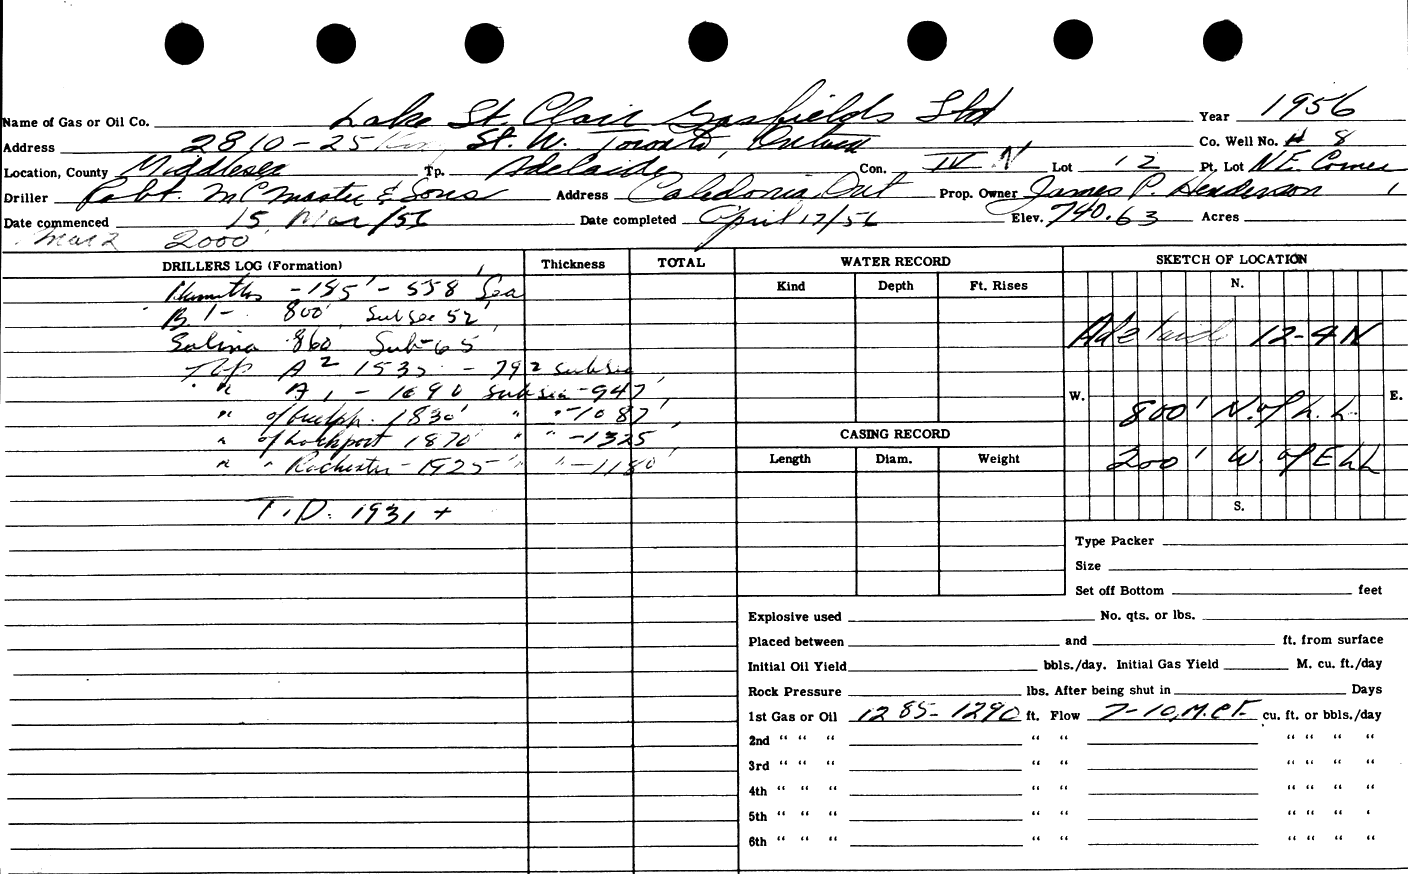 Name of Gas or Oil Co. Lake St. Clair Gasfields Ltd Year 1956
Address 2810 - 25 King St. W. Toronto, Ontario Co. Well No. # 8
Location, County Middlesex Tp. Adelaide Con. IV N Lot 12 Pt. Lot N.E. Corner
Driller Robt. McMaster & Sons Address Caledonia Ont Prop. Owner James P. Henderson
Date commenced 15 Mar/56 Date completed April 17/56 Elev. 740.63 Acres
Mar 2 2000
DRILLERS LOG (Formation) Thickness TOTAL WATER RECORD SKETCH OF LOCATION
Kind Depth Ft. Rises N.
- 185' - 558' Sea
B. 1 - 800' Subsea 52'
Salina 860 Sub-65
Top A 2 1535 - 792 subsea
" A 1 - 1690 subsea - 947'
" of Guelph. 1830' " " - 1087'
" of Lockport 1870' " " - 1325'
" " Rochester - 1925' " " - 1180'
T.D. 1931 +
Adelaide 12-4 N
W. E.
800' N. of L.L.
200' W. of E L L
S.
CASING RECORD
Length Diam. Weight
Type Packer
Size
Set off Bottom feet
Explosive used No. qts. or lbs.
Placed between and ft. from surface
Initial Oil Yield bbls./day. Initial Gas Yield M. cu. ft./day
Rock Pressure lbs. After being shut in Days
1st Gas or Oil 1285 - 1290 ft. Flow 7-10, M.C.F. cu. ft. or bbls./day
2nd " " " " " " " " "
3rd " " " " " " " " "
4th " " " " " " " " "
5th " " " " " " " " '
6th " " " " " " " " "